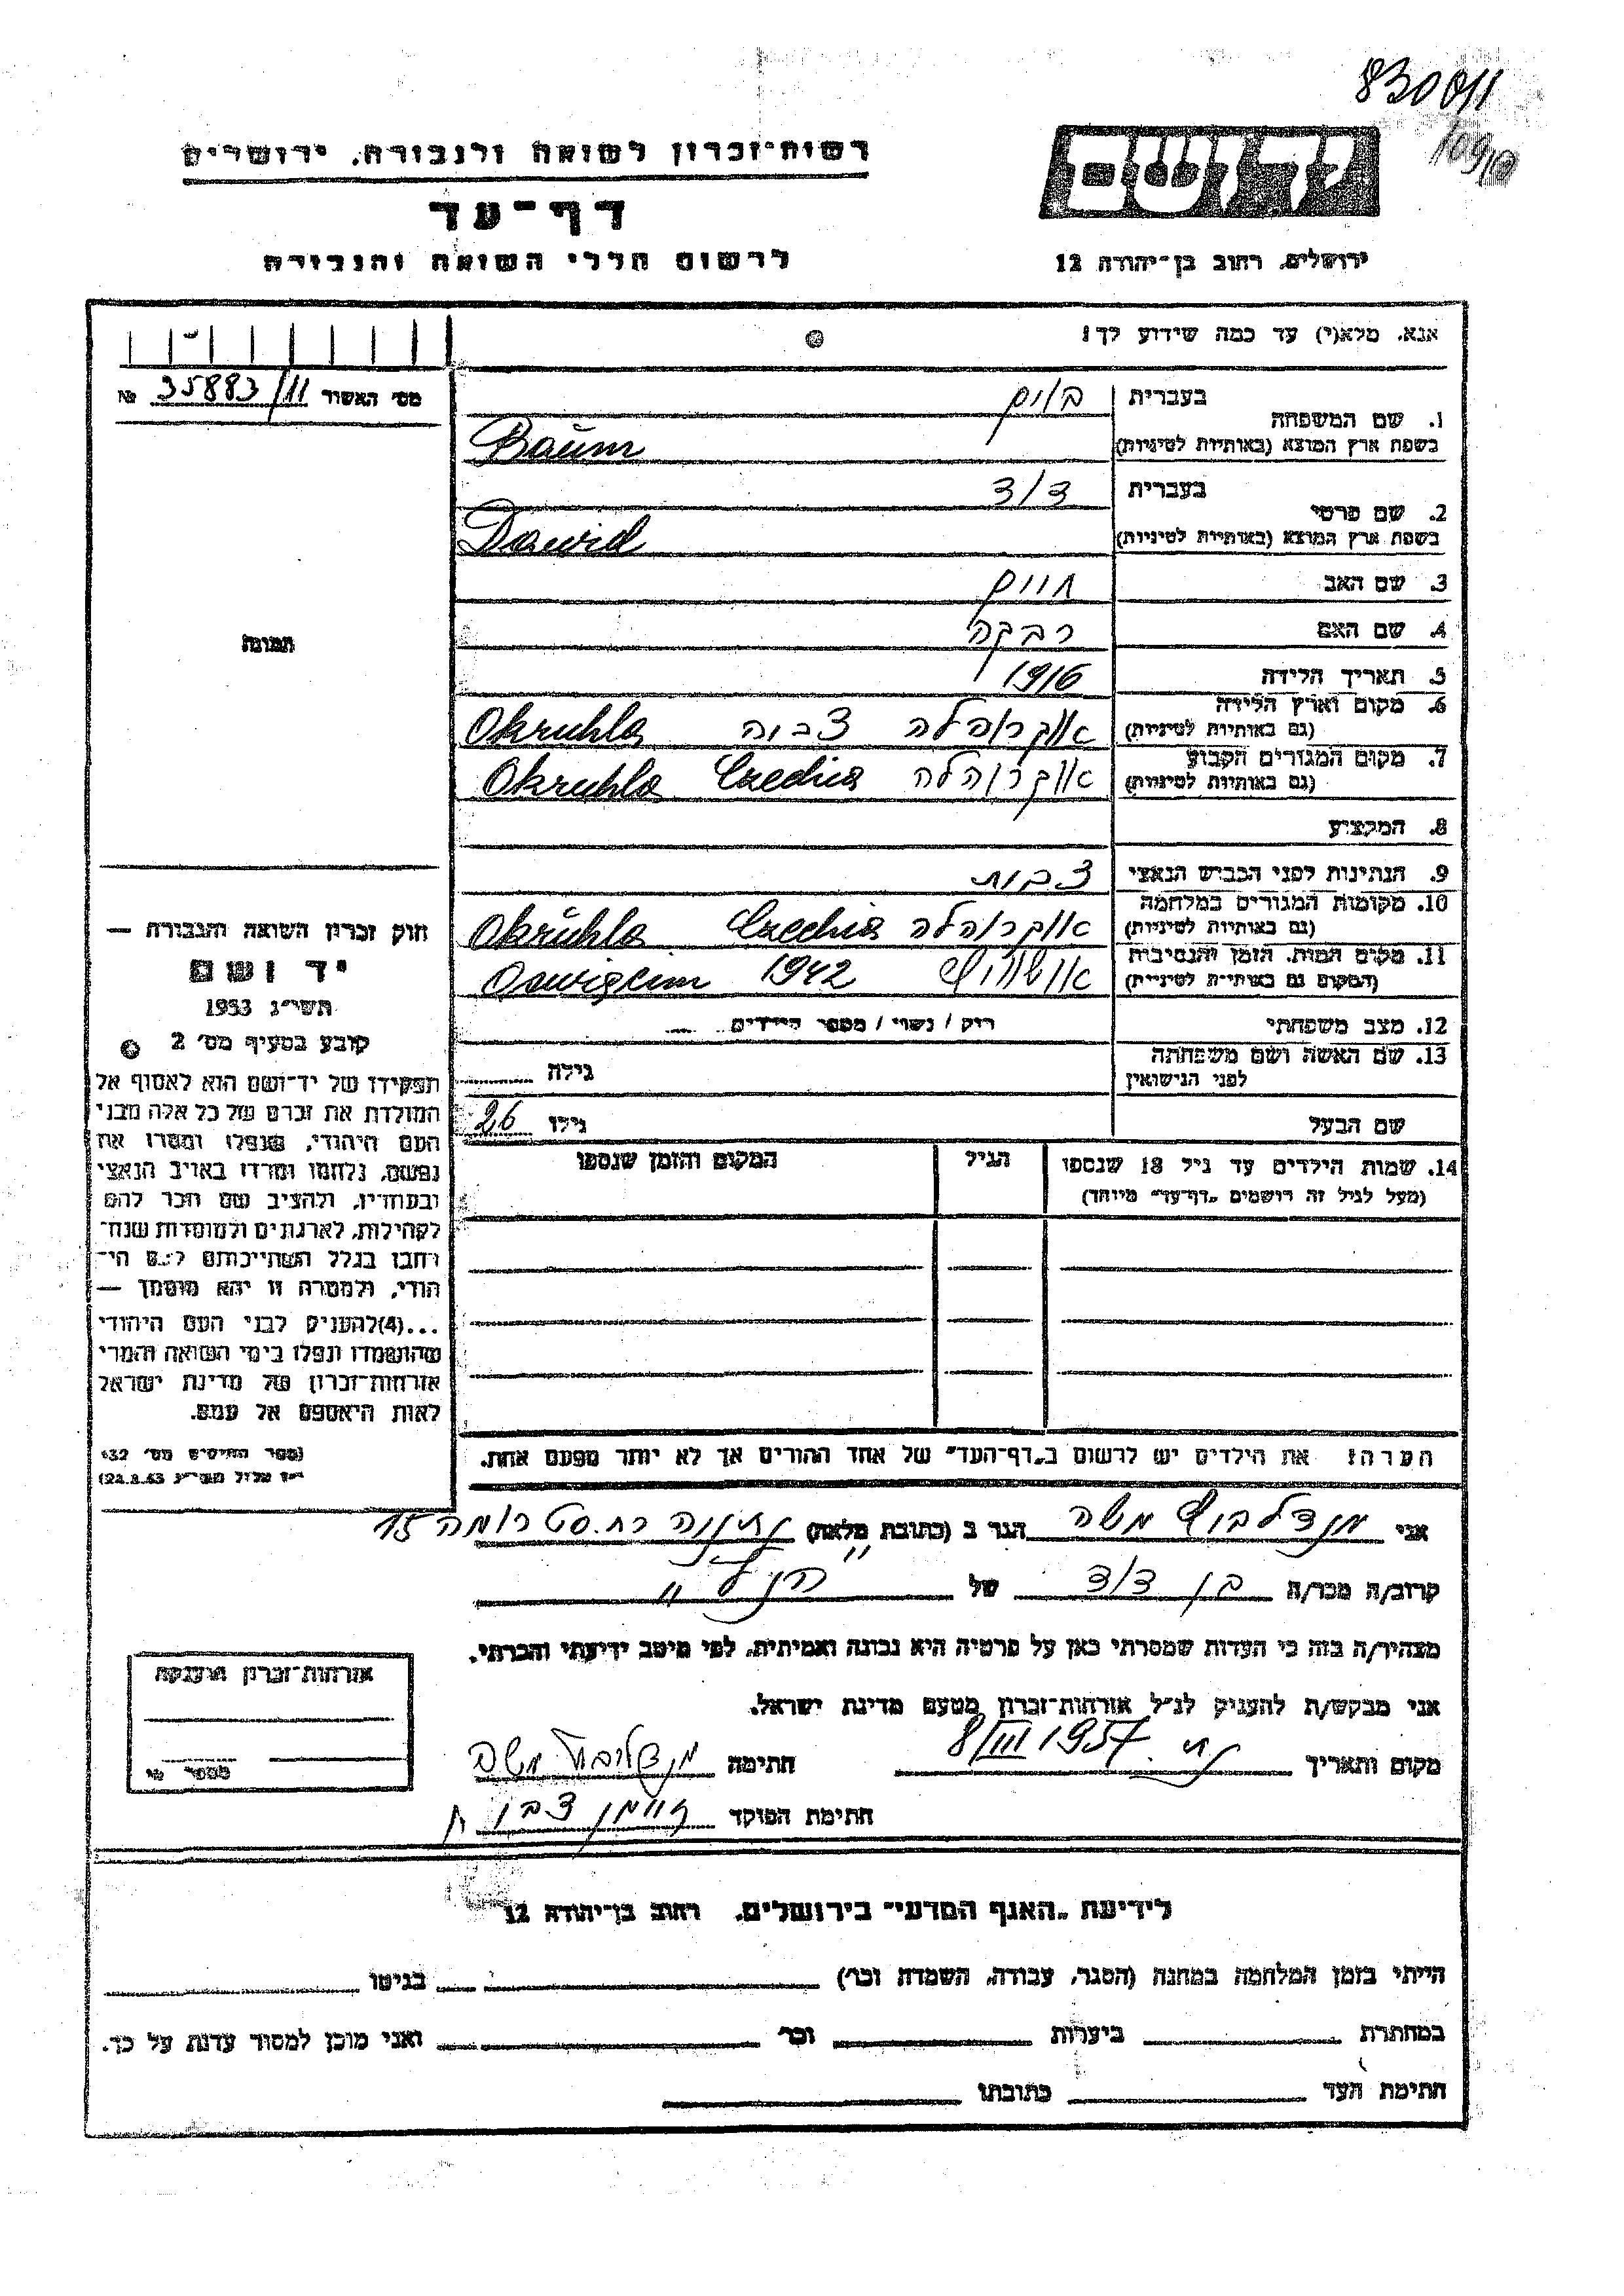 830011
רשות־זכרון לשואה ולגבורה, ירושלים
דף־עד
לרשום חללי השואה והגבורה
יד ושם
ירושלים, רחוב בן־יהודה 12
אנא, מלא(י) עד כמה שידוע לך!
מס׳ האשור 35883/11 №
1. שם המשפחה בעברית באום
בשפת ארץ המוצא (באותיות לטיניות) Baum
2. שם פרטי בעברית דוד
בשפת ארץ המוצא (באותיות לטיניות) Dawid
3. שם האב חיים
4. שם האם רבקה
5. תאריך הלידה 1916
6. מקום וארץ הלידה (גם באותיות לטיניות) אוקרוהלה Okruhla
7. מקום המגורים הקבוע (גם באותיות לטיניות) אוקרוהלה Czechia Okruhla
8. המקצוע
9. הנתינות לפני הכבוש הנאצי
10. מקומות המגורים במלחמה (גם באותיות לטיניות) אוקרוהלה Czechia Okruhla
11. מקום המות, הזמן והנסיבות (המקום גם באותיות לטיניות) אושוויץ 1942
12. מצב משפחתי רווק / נשוי / מספר הילדים
13. שם האשה ושם משפחתה לפני הנישואין גילה
שם הבעל גילו 26
14. שמות הילדים עד גיל 18 שנספו הגיל המקום והזמן שנספו
(מעל לגיל זה רושמים „דף־עד״ מיוחד)
תמונה
חוק זכרון השואה והגבורה —
יד ושם
תשי״ג 1953
קובע בסעיף מס׳ 2
תפקידו של יד־ושם הוא לאסוף אל
המולדת את זכרם של כל אלה מבני
העם היהודי, שנפלו ומסרו את
נפשם, נלחמו ומרדו באויב הנאצי
ובעוזריו, ולהציב שם וזכר להם
לקהילות, לארגונים ולמוסדות שנח־
רבו בגלל השתייכותם לעם הי־
הודי, ולמטרה זו יהא מוסמך —
...(4)להעניק לבני העם היהודי
שהושמדו ונפלו בימי השואה והמרי
אזרחות־זכרון של מדינת ישראל
לאות היאספם אל עמם.
הערה! את הילדים יש לרשום ב„דף־העד״ של אחד ההורים אך לא יותר מפעם אחת.
אני מנדלבוים משה הגר ב (כתובת מלאה) נתניה
קרוב/ה מכר/ה בן דוד של הנ״ל
מצהיר/ה בזה כי העדות שמסרתי כאן על פרטיה היא נכונה ואמיתית, לפי מיטב ידיעתי והכרתי.
אני מבקש/ת להעניק לנ״ל אזרחות־זכרון מטעם מדינת ישראל.
מקום ותאריך 8/III 1957 חתימה מנדלבוים משה
חתימת הפוקד
אזרחות־זכרון הוענקה
לידיעת „האגף המדעי״ בירושלים, רחוב בן־יהודה 12
הייתי בזמן המלחמה במחנה (הסגר, עבודה, השמדה וכו׳) בגיטו
במחתרת ביערות וכו׳ ואני מוכן למסור עדות על כך.
חתימת העד כתובתו